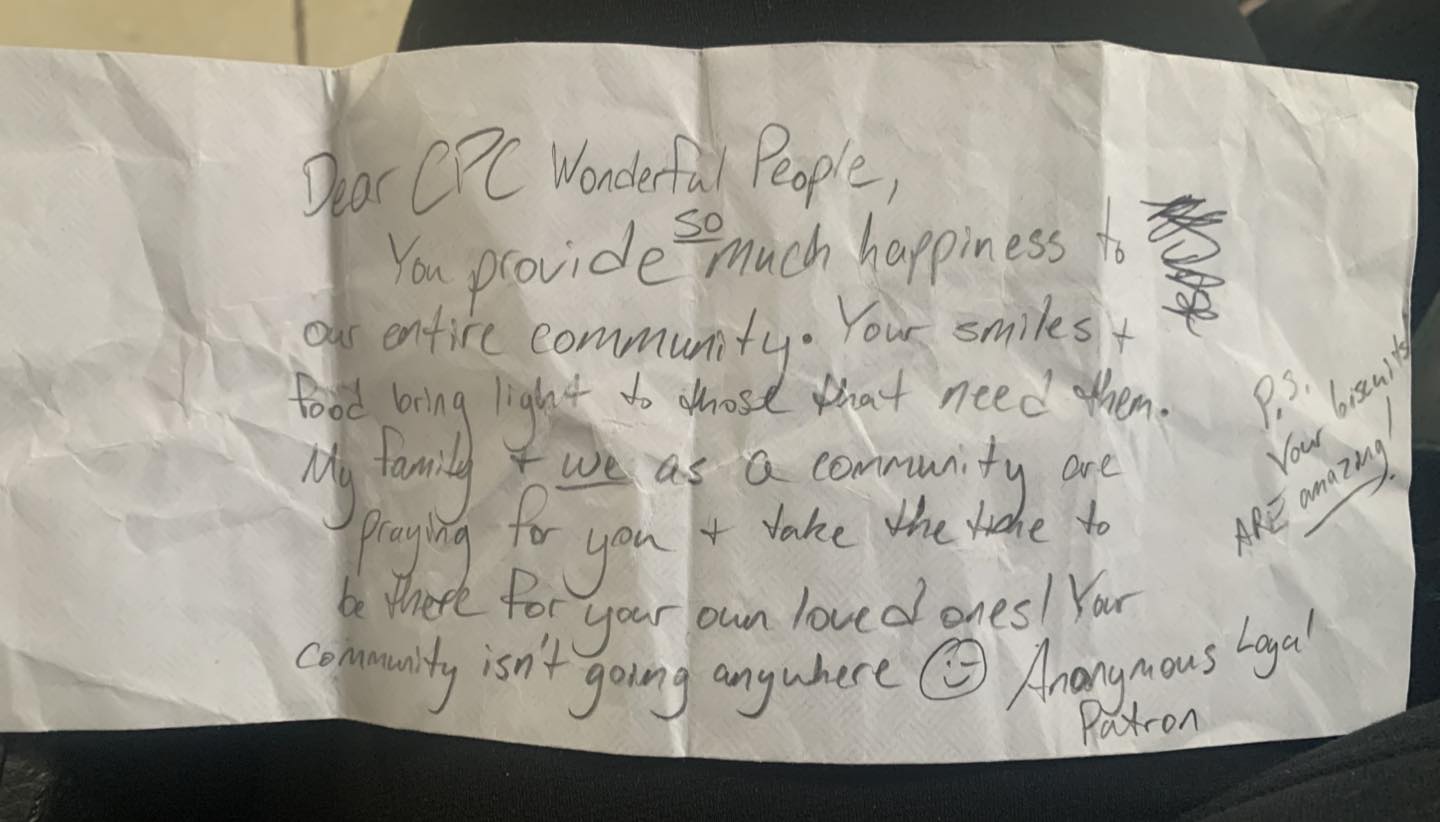 Dear CPC Wonderful People,
You provide so much happiness to
our entire community. Your smiles +
food bring light to those that need them.
My family + we as a community are
praying for you + take the time to
be there for your own loved ones! Your
community isn't going anywhere
Anonymous Loyal
Patron
P.S.
Your biscuits
ARE amazing!